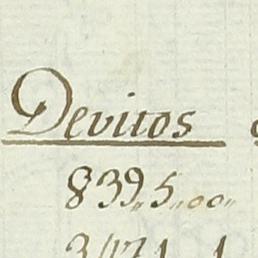 Devitos
839,,5,,00,,